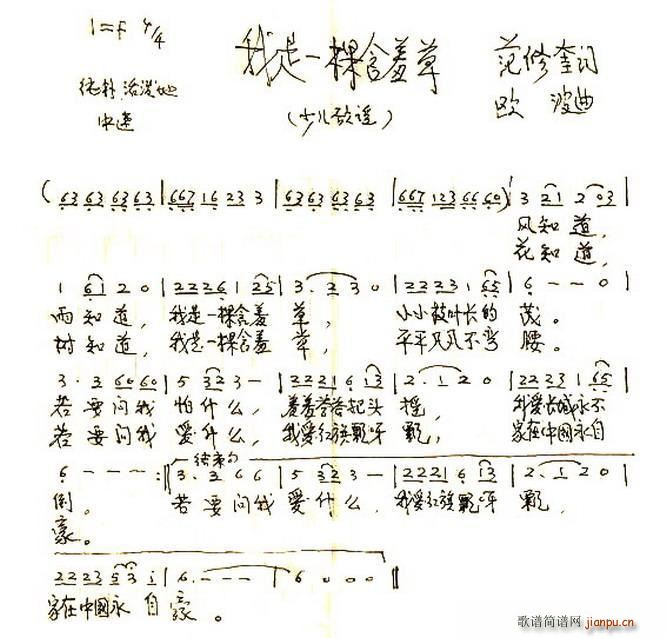 1=F 4/4
我是一棵含羞草
范修奎词
纯朴 活泼地
中速
(少儿歌谣)
欧 波曲
( 63 63 63 63 | 667 16 23 3 | 63 63 63 63 | 667 123 66 60 ) | 3 21 2 03 |
风知道,
花知道,
1 61 2 0 | 2226 1 25 | 3. 2 3 0 | 2223 1 65 | 6 - - 0 |
雨知道, 我是一棵含羞 草, 小小枝叶长的 茂。
树知道, 我是一棵含羞 草, 平平凡凡不弯 腰。
3. 2 60 60 | 5 32 3 - | 2221 6 13 | 2. 1 2 0 | 2223 1 65 |
若要问我 怕什么, 羞羞答答把头 摇, 我爱长城永不
若要问我 爱什么, 我爱红旗飘呀 飘, 家在中国永自
6 - - - :‖ 结束句 3. 2 6 6 | 5 32 3 - | 2221 6 13 | 2. 1 2 0 |
倒。 若要问我 爱什么, 我爱红旗飘呀 飘,
豪。
2223 53 i | 6. - - - | 6 0 0 0 ‖
家在中国永 自 豪。
歌谱简谱网
jianpu.cn